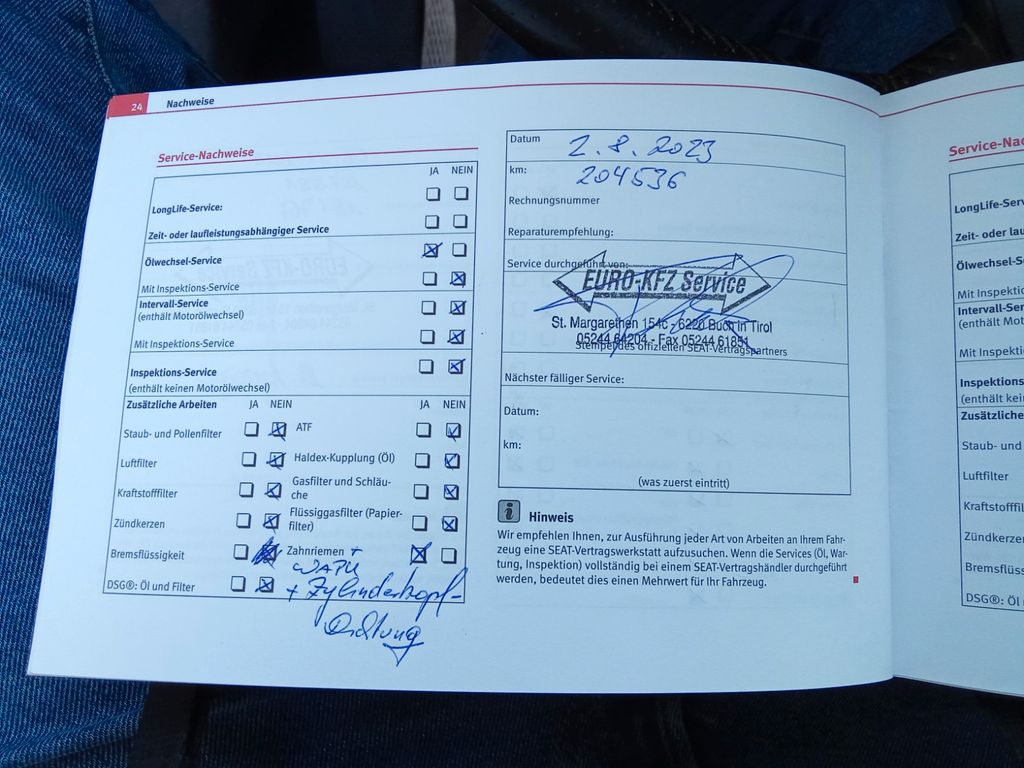 24 Nachweise
Service-Nachweise
JA NEIN
LongLife-Service:
Zeit- oder laufleistungsabhängiger Service
Ölwechsel-Service
Mit Inspektions-Service
Intervall-Service
(enthält Motorölwechsel)
Mit Inspektions-Service
Inspektions-Service
(enthält keinen Motorölwechsel)
Zusätzliche Arbeiten JA NEIN JA NEIN
Staub- und Pollenfilter ATF
Luftfilter Haldex-Kupplung (Öl)
Kraftstofffilter Gasfilter und Schläu-
che
Zündkerzen Flüssiggasfilter (Papier-
filter)
Bremsflüssigkeit Zahnriemen +
WAPU
DSG®: Öl und Filter + Zylinderkopf-
Dichtung
Datum 2.8.2023
km: 204536
Rechnungsnummer
Reparaturempfehlung:
Service durchgeführt von:
EURO-KFZ Service
St. Margarethen 154c - 6220 Buch in Tirol
05244 64204 - Fax 05244 61851
Stempel des offiziellen SEAT-Vertragspartners
Nächster fälliger Service:
Datum:
km:
(was zuerst eintritt)
i Hinweis
Wir empfehlen Ihnen, zur Ausführung jeder Art von Arbeiten an Ihrem Fahr-
zeug eine SEAT-Vertragswerkstatt aufzusuchen. Wenn die Services (Öl, War-
tung, Inspektion) vollständig bei einem SEAT-Vertragshändler durchgeführt
werden, bedeutet dies einen Mehrwert für Ihr Fahrzeug.
Service-Na
LongLife-Serv
Zeit- oder lau
Ölwechsel-S
Mit Inspektio
Intervall-Ser
(enthält Moto
Mit Inspektio
Inspektions
(enthält kei
Zusätzliche
Staub- und
Luftfilter
Kraftstofff
Zündkerze
Bremsflüss
DSG®: Öl u